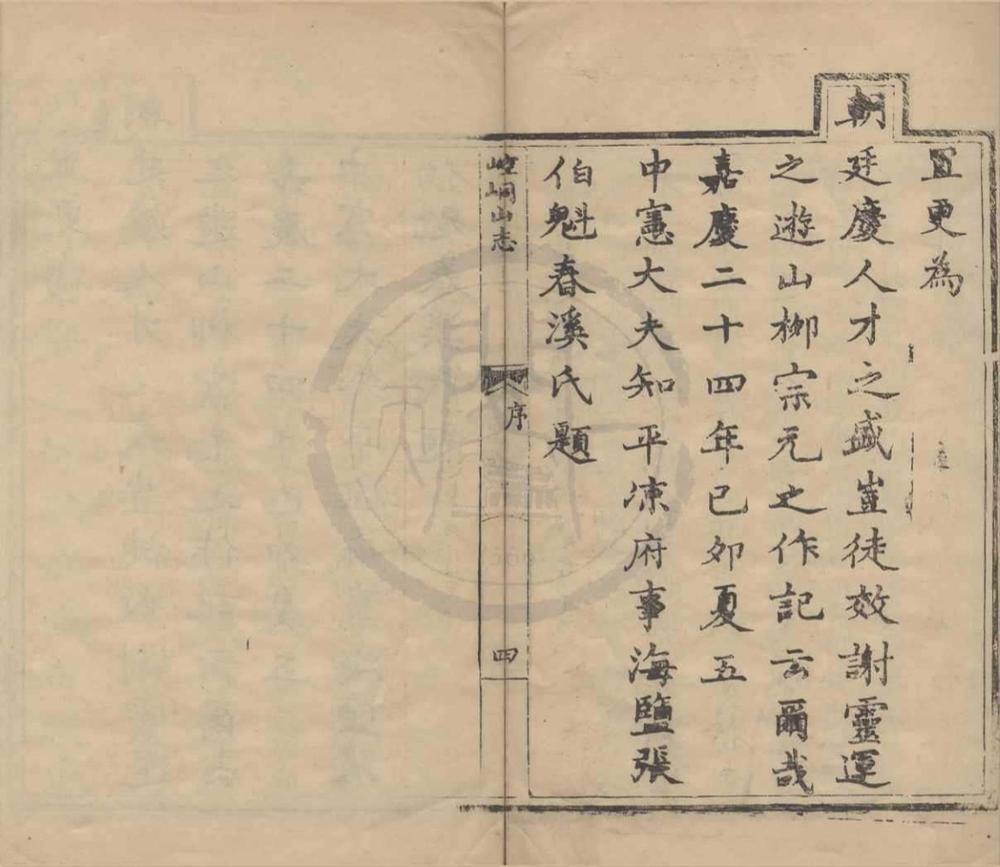 且更為
朝廷慶人才之盛豈徒效謝靈運
之遊山柳宗元之作記云爾哉
嘉慶二十四年己卯夏五
中憲大夫知平涼府事海鹽張
伯魁春溪氏題
崆峒山志
序
四